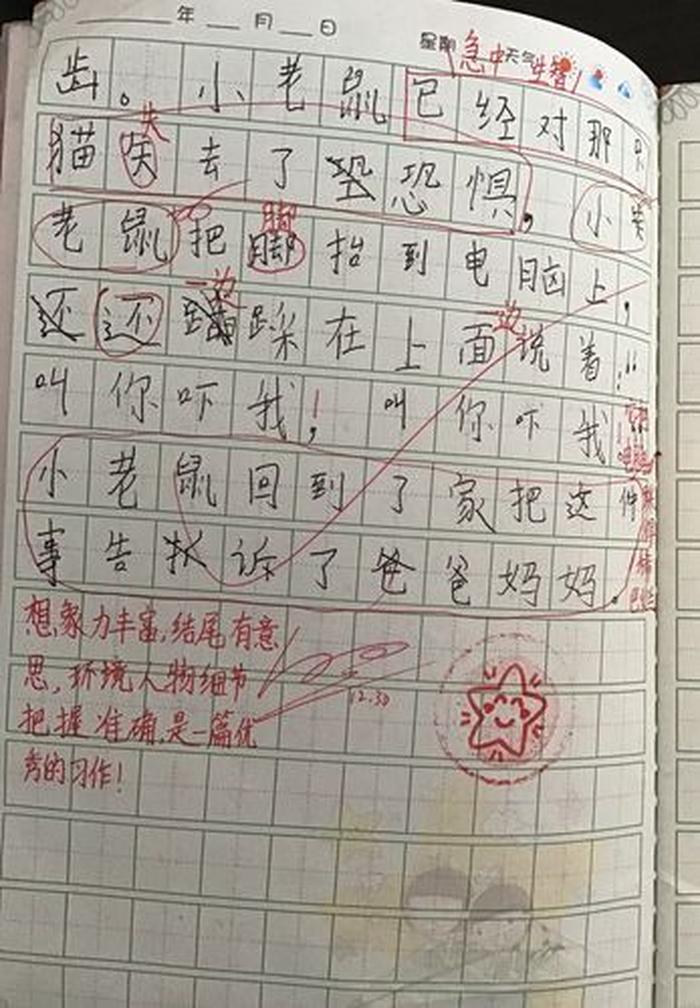 年 月 日
星期 天气
急中生智!
齿。小老鼠已经对那只
猫失去了恐惧,小
失
老鼠把脚抬到电脑上,
脚
还踩在上面说着:“
一边
边
叫你吓我!,叫你吓我
小老鼠回到了家把这件
事告诉了爸爸妈妈.
想象力丰富,结尾有意
思,环境人物细节
把握准确,是一篇优
秀的习作!
12.30